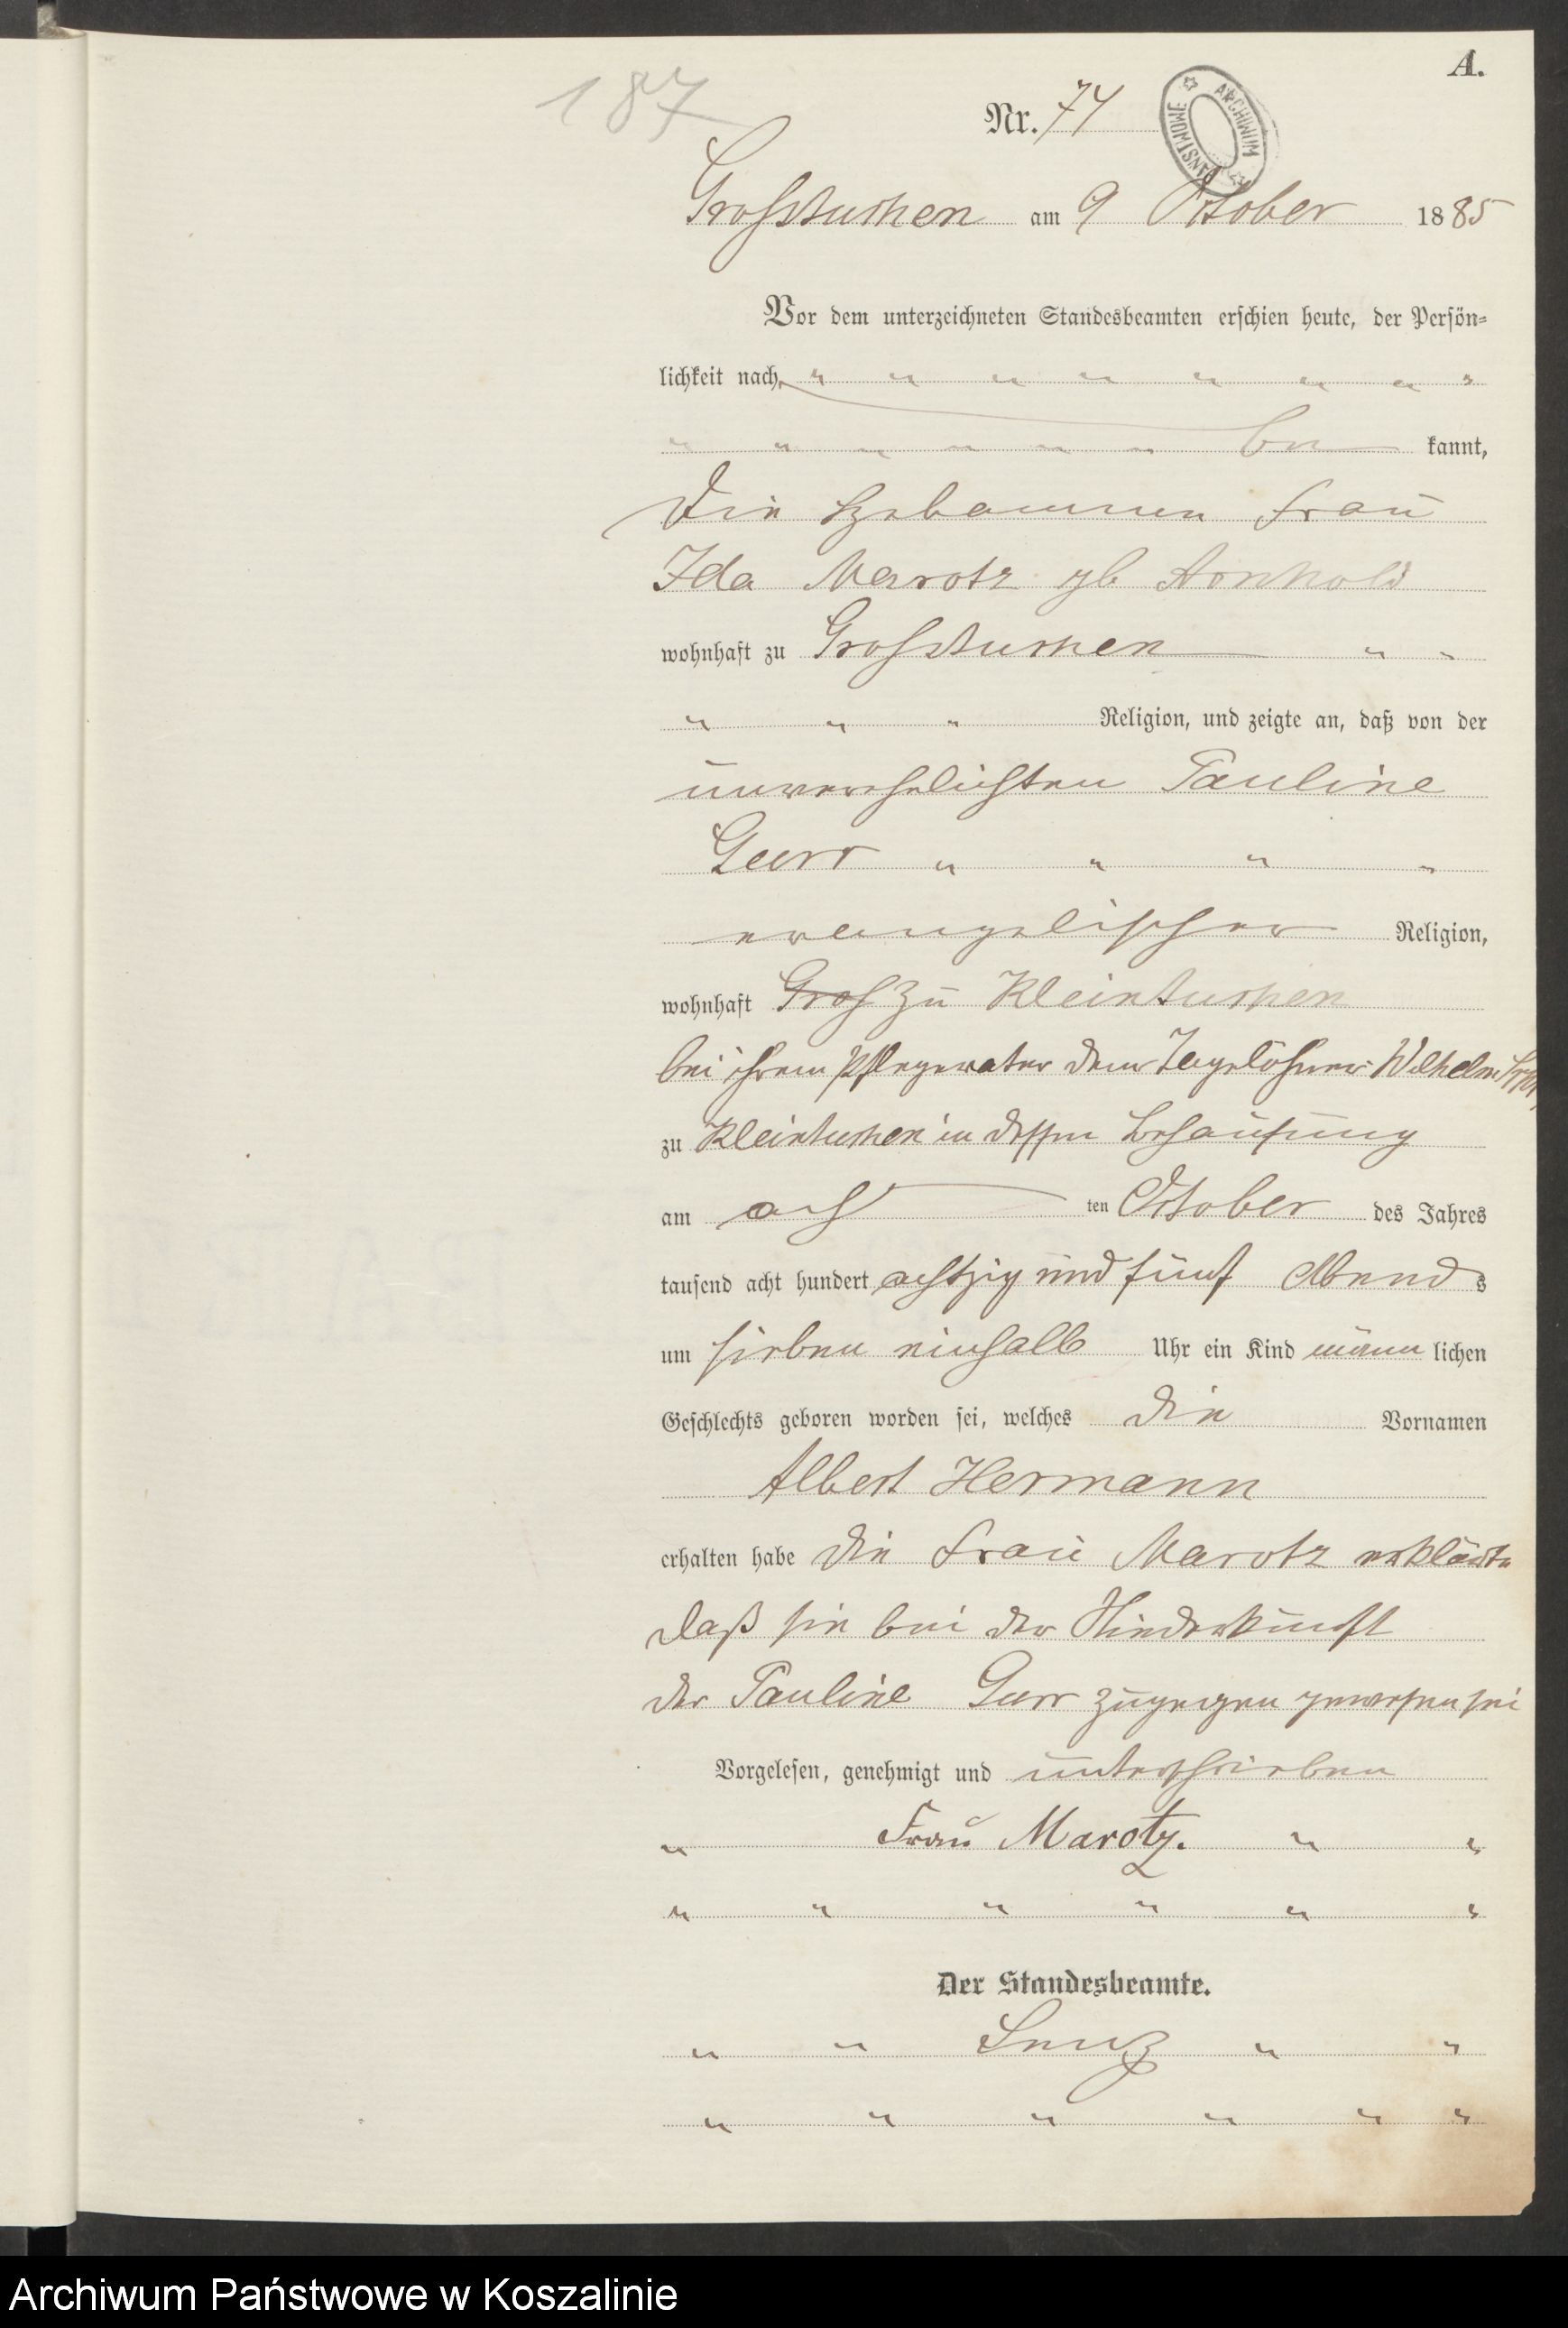 A.
187
Nr. 74
ARCHIWUM PAŃSTWOWE
Grosstuchen am 9 October 1885
Vor dem unterzeichneten Standesbeamten erschien heute, der Persön-
lichkeit nach
be kannt,
die Hebamme Frau
Ida Marotz gb Arnhold
wohnhaft zu Grosstuchen
Religion, und zeigte an, daß von der
unverehelichten Pauline
Gurr
evangelischer Religion,
wohnhaft Gros zu Kleintuchen
bei ihrem Pflegevater dem Tagelöhner Wilhelm
zu Kleintuchen in dessen Behausung
am acht ten October des Jahres
tausend acht hundert achtzig und fünf Abends
um sieben einhalb Uhr ein Kind männ lichen
Geschlechts geboren worden sei, welches die Vornamen
Albert Hermann
erhalten habe die Frau Marotz erklärte
daß sie bei der Niederkunft
der Pauline Gurr zugegen gewesen sei
Vorgelesen, genehmigt und unterschrieben
Frau Marotz.
Der Standesbeamte.
Lenz
Archiwum Państwowe w Koszalinie